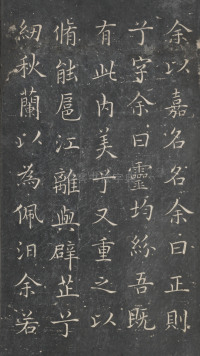 余以嘉名名余曰正則
兮字余曰靈均紛吾既
有此内美兮又重之以
脩能扈江離與辟芷兮
紉秋蘭以為佩汨余若